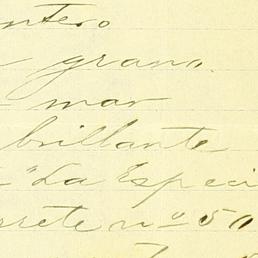 ntero
grano.
mar
brillante
"La Especi
rrete nº 50